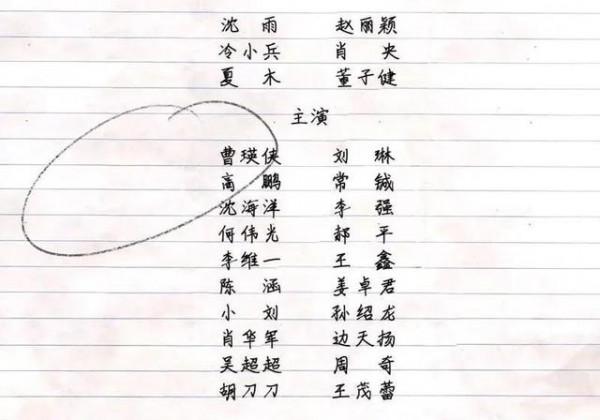 沈雨 赵丽颖
冷小兵 肖央
夏木 董子健
主演
曹瑛侠 刘琳
高鹏 常铖
沈海洋 李强
何伟光 郝平
李维一 王鑫
陈涵 姜卓君
小刘 孙绍龙
肖华军 边天扬
吴超超 周奇
胡刀刀 王茂蕾